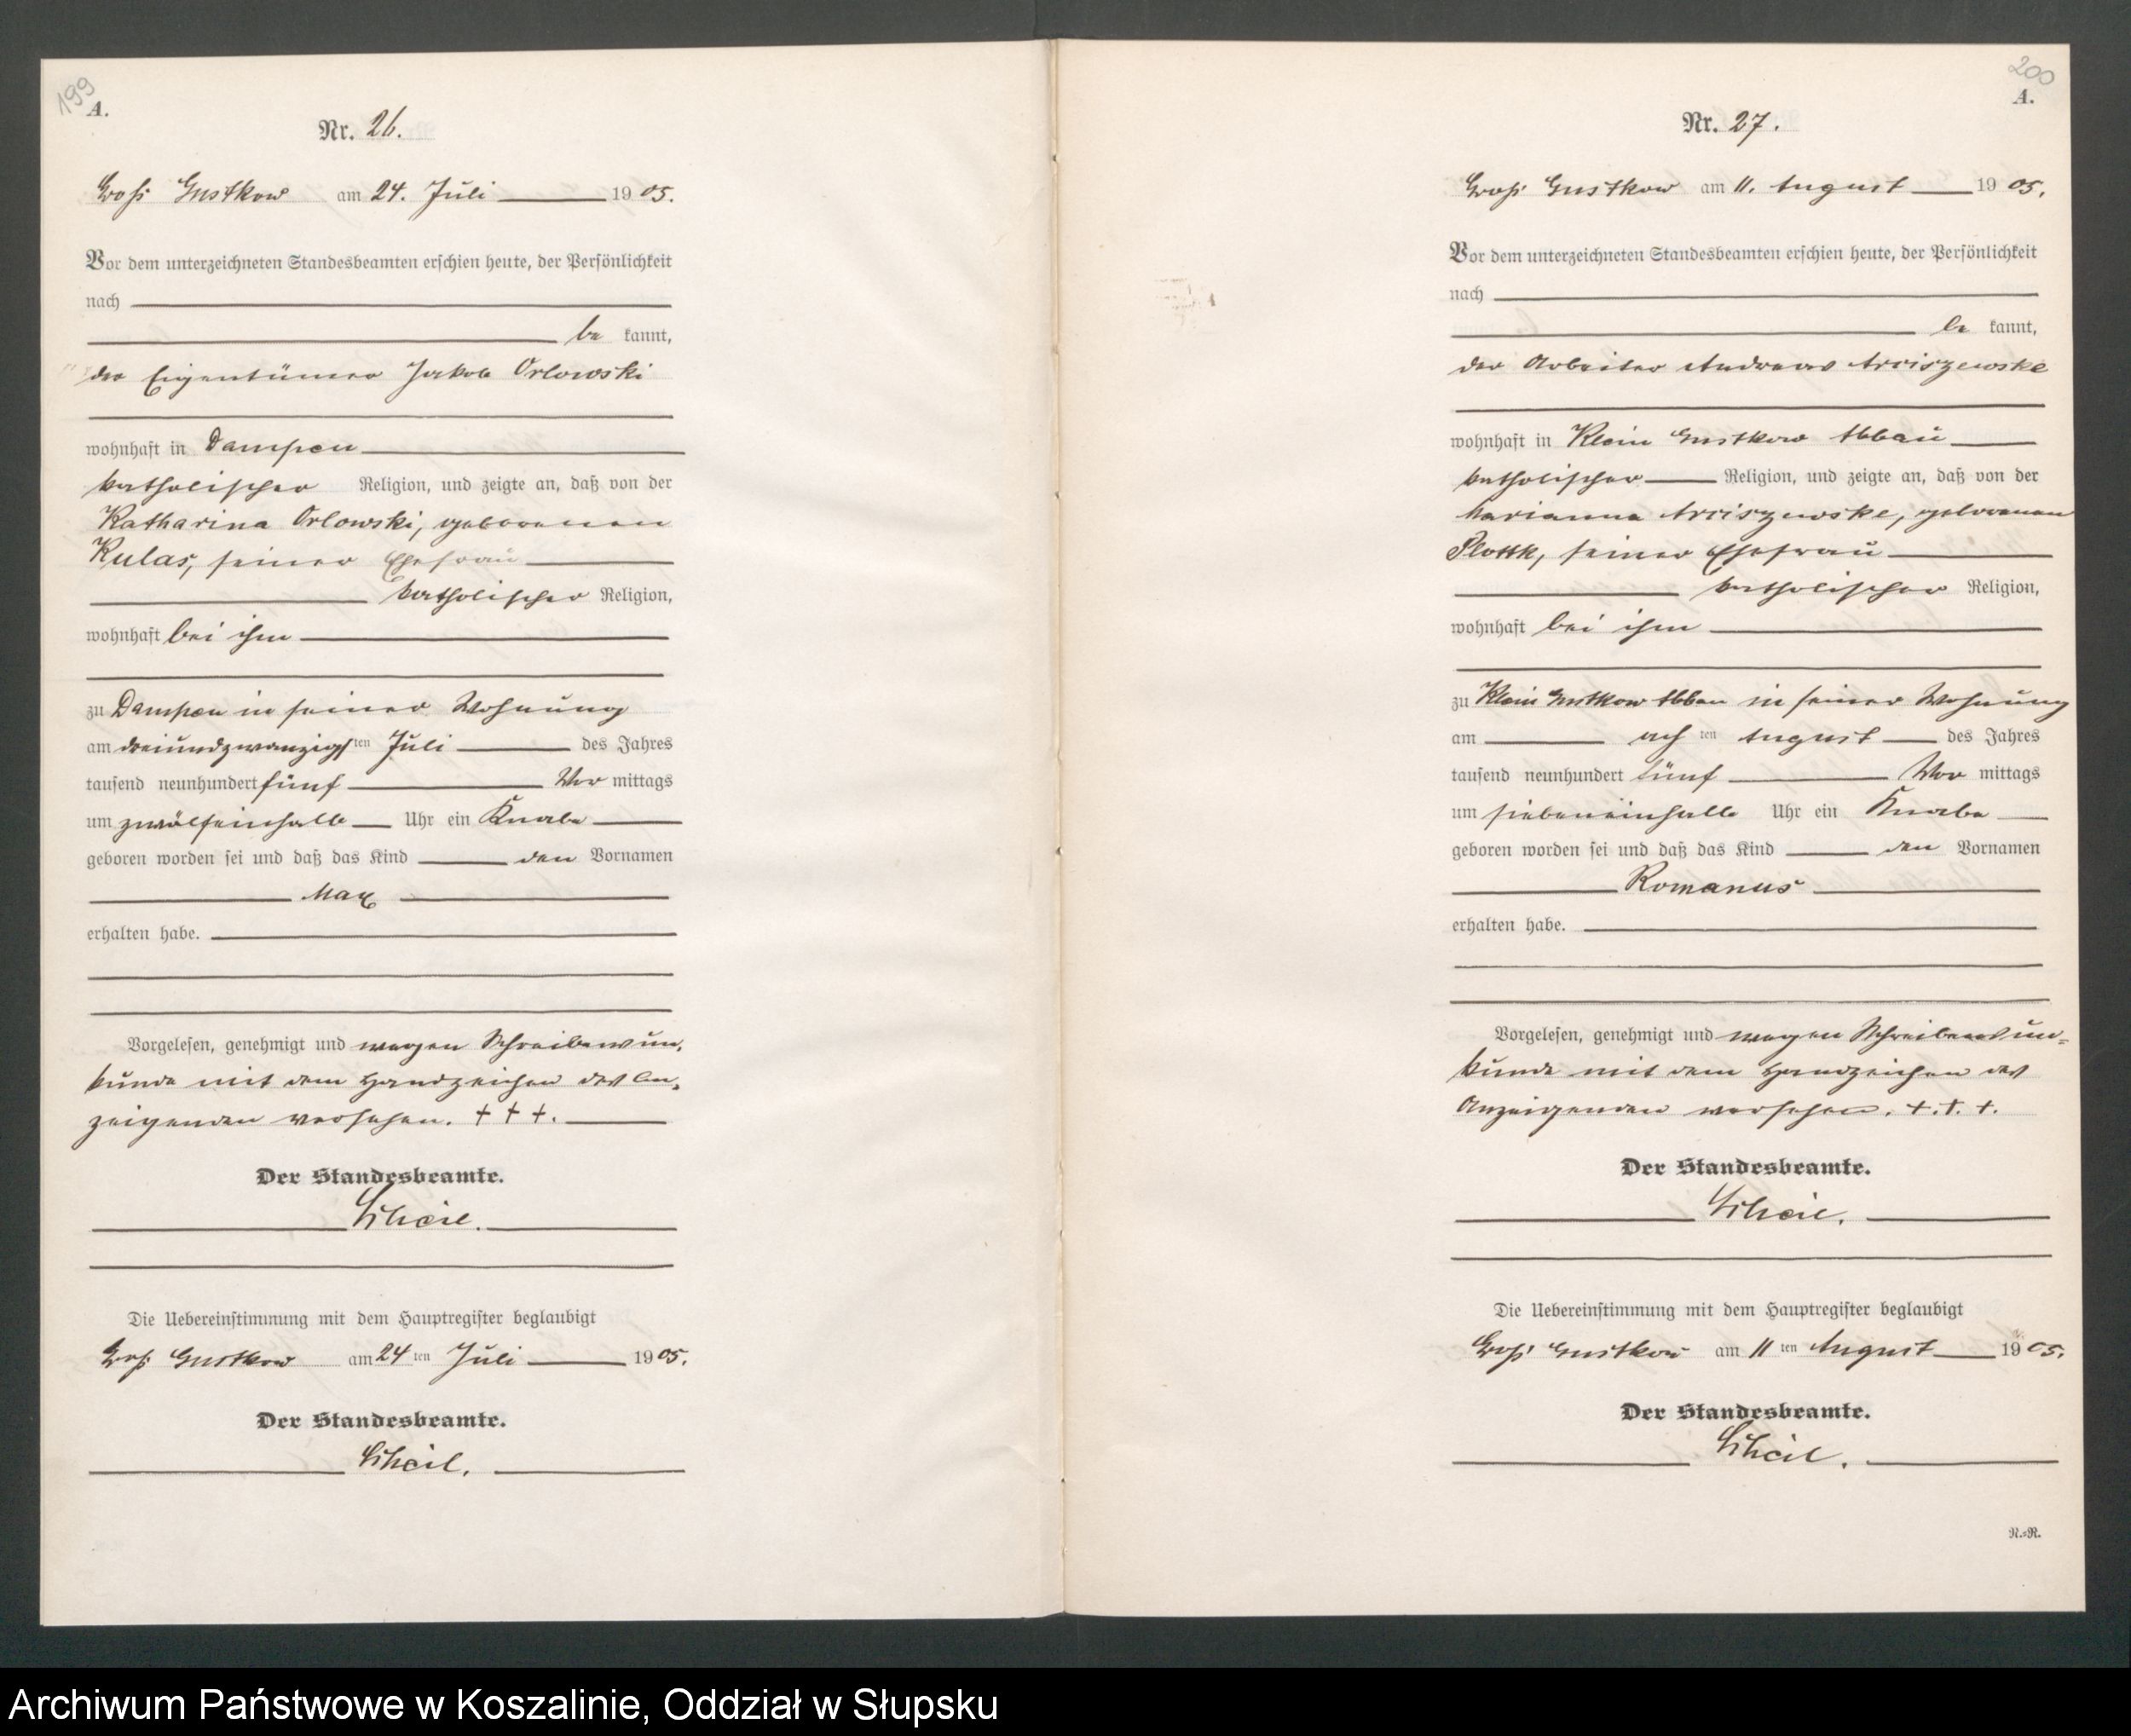 199
A.
Nr. 26.
Groß Gustkow am 24. Juli 1905.
Vor dem unterzeichneten Standesbeamten erschien heute, der Persönlichkeit
nach
be kannt,
der Eigentümer Jakob Orlowski
wohnhaft in Dampen
katholischer Religion, und zeigte an, daß von der
Katharina Orlowski, geborenen
Kulas, seiner Ehefrau
katholischer Religion,
wohnhaft bei ihm
zu Dampen in seiner Wohnung
am dreiundzwanzigsten Juli des Jahres
tausend neunhundert fünf Vor mittags
um zwölfeinhalb Uhr ein Knabe
geboren worden sei und daß das Kind den Vornamen
Max
erhalten habe.
Vorgelesen, genehmigt und wegen Schreibensun-
kunde mit dem Handzeichen des An-
zeigenden versehen. + + +.
Der Standesbeamte.
Die Uebereinstimmung mit dem Hauptregister beglaubigt
Groß Gustkow am 24ten Juli 1905.
Der Standesbeamte.
200
A.
Nr. 27.
Groß Gustkow am 11. August 1905.
Vor dem unterzeichneten Standesbeamten erschien heute, der Persönlichkeit
nach
be kannt,
der Arbeiter Andreas Arciszewske
wohnhaft in Klein Gustkow Abbau
katholischer Religion, und zeigte an, daß von der
Marianna Arciszewske, geborenen
Plottk, seiner Ehefrau
katholischer Religion,
wohnhaft bei ihm
zu Klein Gustkow Abbau in seiner Wohnung
am achten August des Jahres
tausend neunhundert fünf Vor mittags
um siebeneinhalb Uhr ein Knabe
geboren worden sei und daß das Kind den Vornamen
Romanus
erhalten habe.
Vorgelesen, genehmigt und wegen Schreibensun-
kunde mit dem Handzeichen des
Anzeigenden versehen. +. +. +.
Der Standesbeamte.
Die Uebereinstimmung mit dem Hauptregister beglaubigt
Groß Gustkow am 11ten August 1905.
Der Standesbeamte.
R.=R.
Archiwum Państwowe w Koszalinie, Oddział w Słupsku